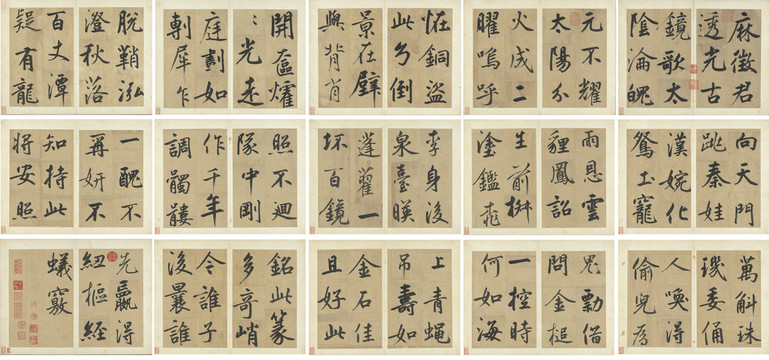 麻徵君
透光古
鏡歌太
陰淪魄
元不耀
太陽分
火成二
曜嗚呼
怪銅盜
此兮倒
景在壁
與背肖
開奩燿
〻光走
庭劃如
剸犀乍
脫鞘泓
澄秋落
百丈潭
疑有龍
向天門
跳秦娃
漢婉化
鴛土寵
雨恩雲
貍鳳詔
生前拚
塗鑑
李身後
泉臺暎
蓬藋一
坏百鏡
照不迴
隊中剛
作千年
調髑髏
一醜不
再妍不
知持此
將安照
萬斛珠
璣委俑
人喚得
偷兒為
鬼剽借
問金槌
一控時
何如海
上青蠅
吊壽如
金石佳
且好此
銘此篆
多奇峭
令誰子
後曩誰
先贏得
紐樞經
蟻竅